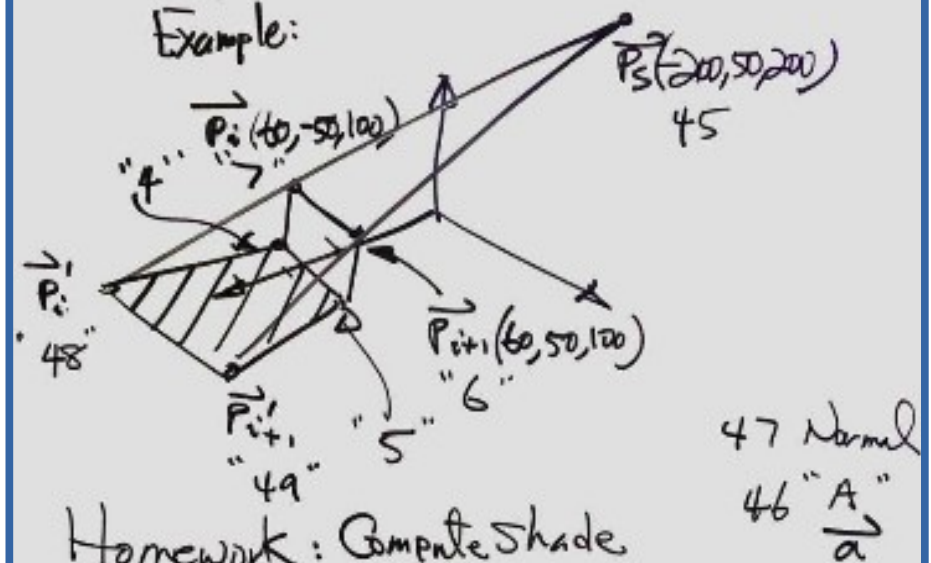 Example:
Ps(-200,50,200)
45
Pi(60,-50,100)
"4" "7"
Pi'
"48"
Pi+1(60,50,100)
"6"
Pi+1'
"5"
"49"
47 Normal
46 "A"
a
Homework: Compute Shade